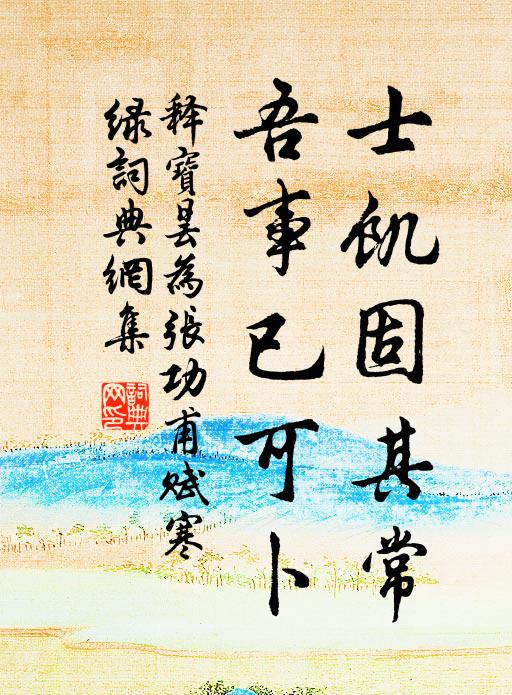 士飢固其常
吾事已可卜
释寶曇為張功甫賦寒
緑詞典網集
詞典
网印